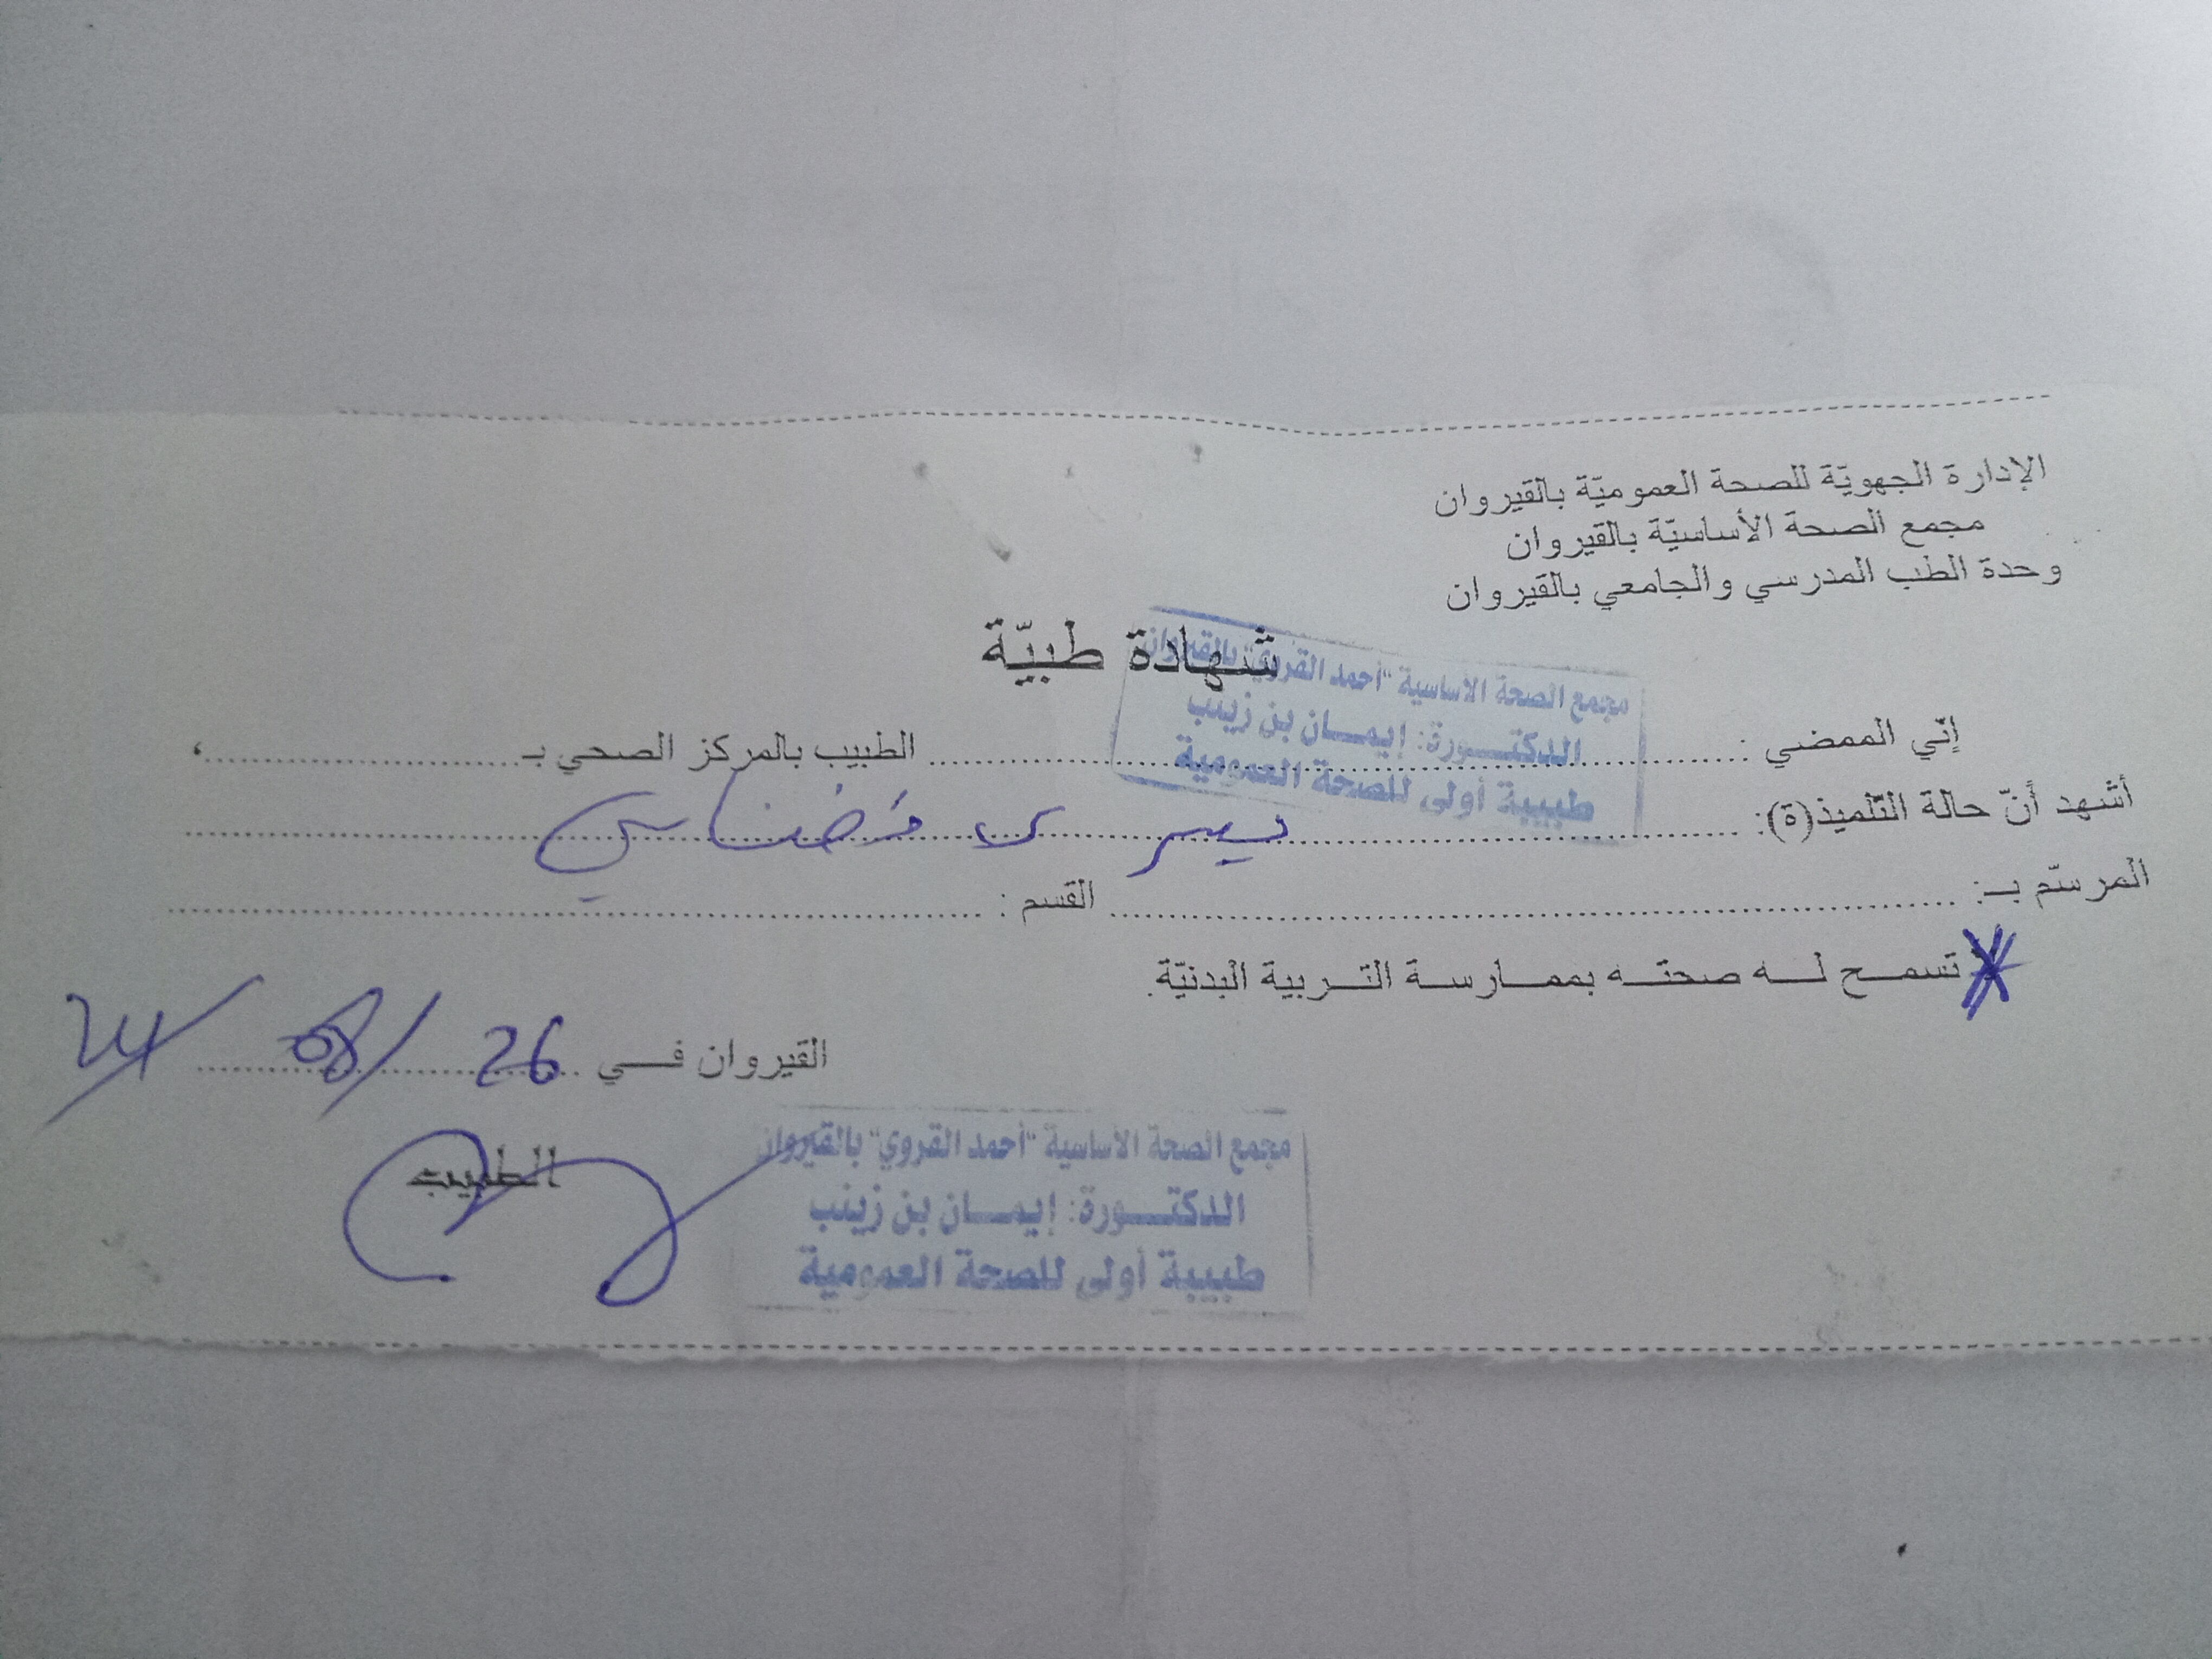 الإدارة الجهويّة للصحة العموميّة بالقيروان
مجمع الصحة الأساسيّة بالقيروان
وحدة الطب المدرسي والجامعي بالقيروان
شهادة طبيّة
مجمع الصحة الأساسية "أحمد القروي" بالقيروان
الدكتـــورة: إيمـــان بن زينب
طبيبة أولى للصحة العمومية
إنّي الممضي : ........................ الطبيب بالمركز الصحي بـ ........................،
أشهد أنّ حالة التّلميذ(ة): يسرى
المرسّم بـــ: ........................ القسم : ........................
تسمـــح لـــه صحتـــه بممـــارســـة التـــربية البدنيّة.
القيروان فـــي 26/08/24
الطبيب
مجمع الصحة الأساسية "أحمد القروي" بالقيروان
الدكتـــورة: إيمـــان بن زينب
طبيبة أولى للصحة العمومية